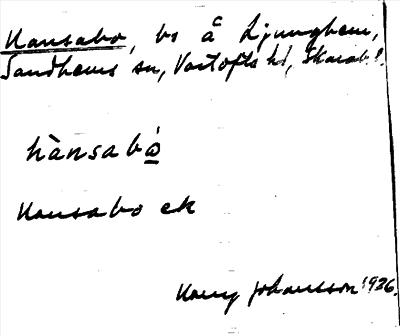 Hansabo, bs å Ljunghem,
Sandhems sn, Vartofta hd, Skarab. l.
hànsabó̲
Hansabo ek
Harry Johansson 1926.